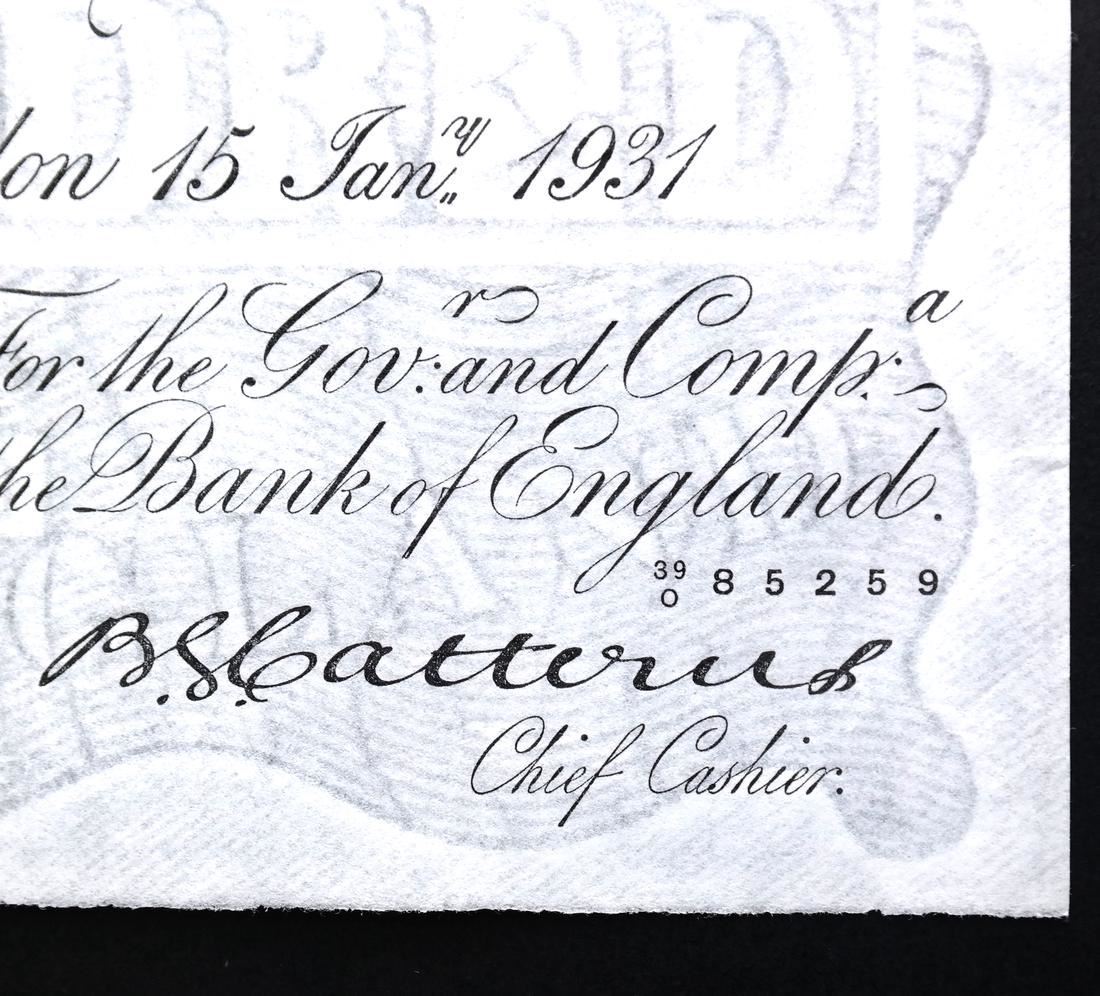 lon 15 Jan.ʸ 1931
For the Gov:ʳ and Comp:ᵃ
the Bank of England.
39/0 85259
B.G.Catterns
Chief Cashier.